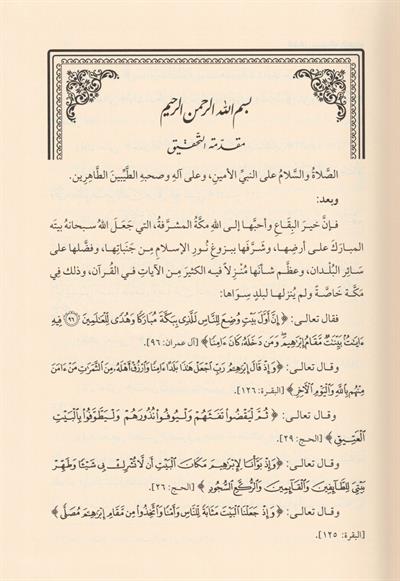 بسم الله الرحمن الرحيم
مقدمة التحقيق
الصَّلاةُ والسَّلامُ على النبيِّ الأمينِ، وعلى آلهِ وصحبهِ الطَّيِّبينَ الطَّاهِرِين.
وبعد:
فإنَّ خيرَ البِقَاعِ وأحبَّها إلى اللهِ مكَّةُ المشرَّفةُ، التي جَعَلَ اللهُ سبحانهُ بيتَه
المباركَ على أرضِها، وشرَّفها ببزوغِ نُورِ الإسلامِ مِن جَنَباتِها، وفضَّلها على
سَائرِ البُلدان، وعظَّم شأنَها مُنْزِلاً فيه الكثيرَ مِن الآياتِ في القُرآن، وذلك في
مكَّة خاصَّةً ولم يُنزلها لبلدٍ سِواها:
فقال تعالى: ﴿ إِنَّ أَوَّلَ بَيْتٍ وُضِعَ لِلنَّاسِ لَلَّذِى بِبَكَّةَ مُبَارَكًا وَهُدًى لِّلْعَالَمِينَ ﴿٩٦﴾ فِيهِ
ءَايَٰتٌۢ بَيِّنَٰتٌ مَّقَامُ إِبْرَٰهِيمَ ۖ وَمَن دَخَلَهُۥ كَانَ ءَامِنًا ﴾ [آل عمران: ٩٦].
وقال تعالى: ﴿ وَإِذْ قَالَ إِبْرَٰهِـۧمُ رَبِّ ٱجْعَلْ هَٰذَا بَلَدًا ءَامِنًا وَٱرْزُقْ أَهْلَهُۥ مِنَ ٱلثَّمَرَٰتِ مَنْ ءَامَنَ
مِنْهُم بِٱللَّهِ وَٱلْيَوْمِ ٱلْءَاخِرِ ﴾ [البقرة: ١٢٦].
وقال تعالى: ﴿ ثُمَّ لْيَقْضُوا۟ تَفَثَهُمْ وَلْيُوفُوا۟ نُذُورَهُمْ وَلْيَطَّوَّفُوا۟ بِٱلْبَيْتِ
ٱلْعَتِيقِ ﴾ [الحج: ٢٩].
وقال تعالى: ﴿ وَإِذْ بَوَّأْنَا لِإِبْرَٰهِيمَ مَكَانَ ٱلْبَيْتِ أَن لَّا تُشْرِكْ بِى شَيْـًٔا وَطَهِّرْ
بَيْتِىَ لِلطَّآئِفِينَ وَٱلْقَآئِمِينَ وَٱلرُّكَّعِ ٱلسُّجُودِ ﴾ [الحج: ٢٦].
وقال تعالى: ﴿ وَإِذْ جَعَلْنَا ٱلْبَيْتَ مَثَابَةً لِّلنَّاسِ وَأَمْنًا وَٱتَّخِذُوا۟ مِن مَّقَامِ إِبْرَٰهِـۧمَ مُصَلًّى ﴾
[البقرة: ١٢٥].